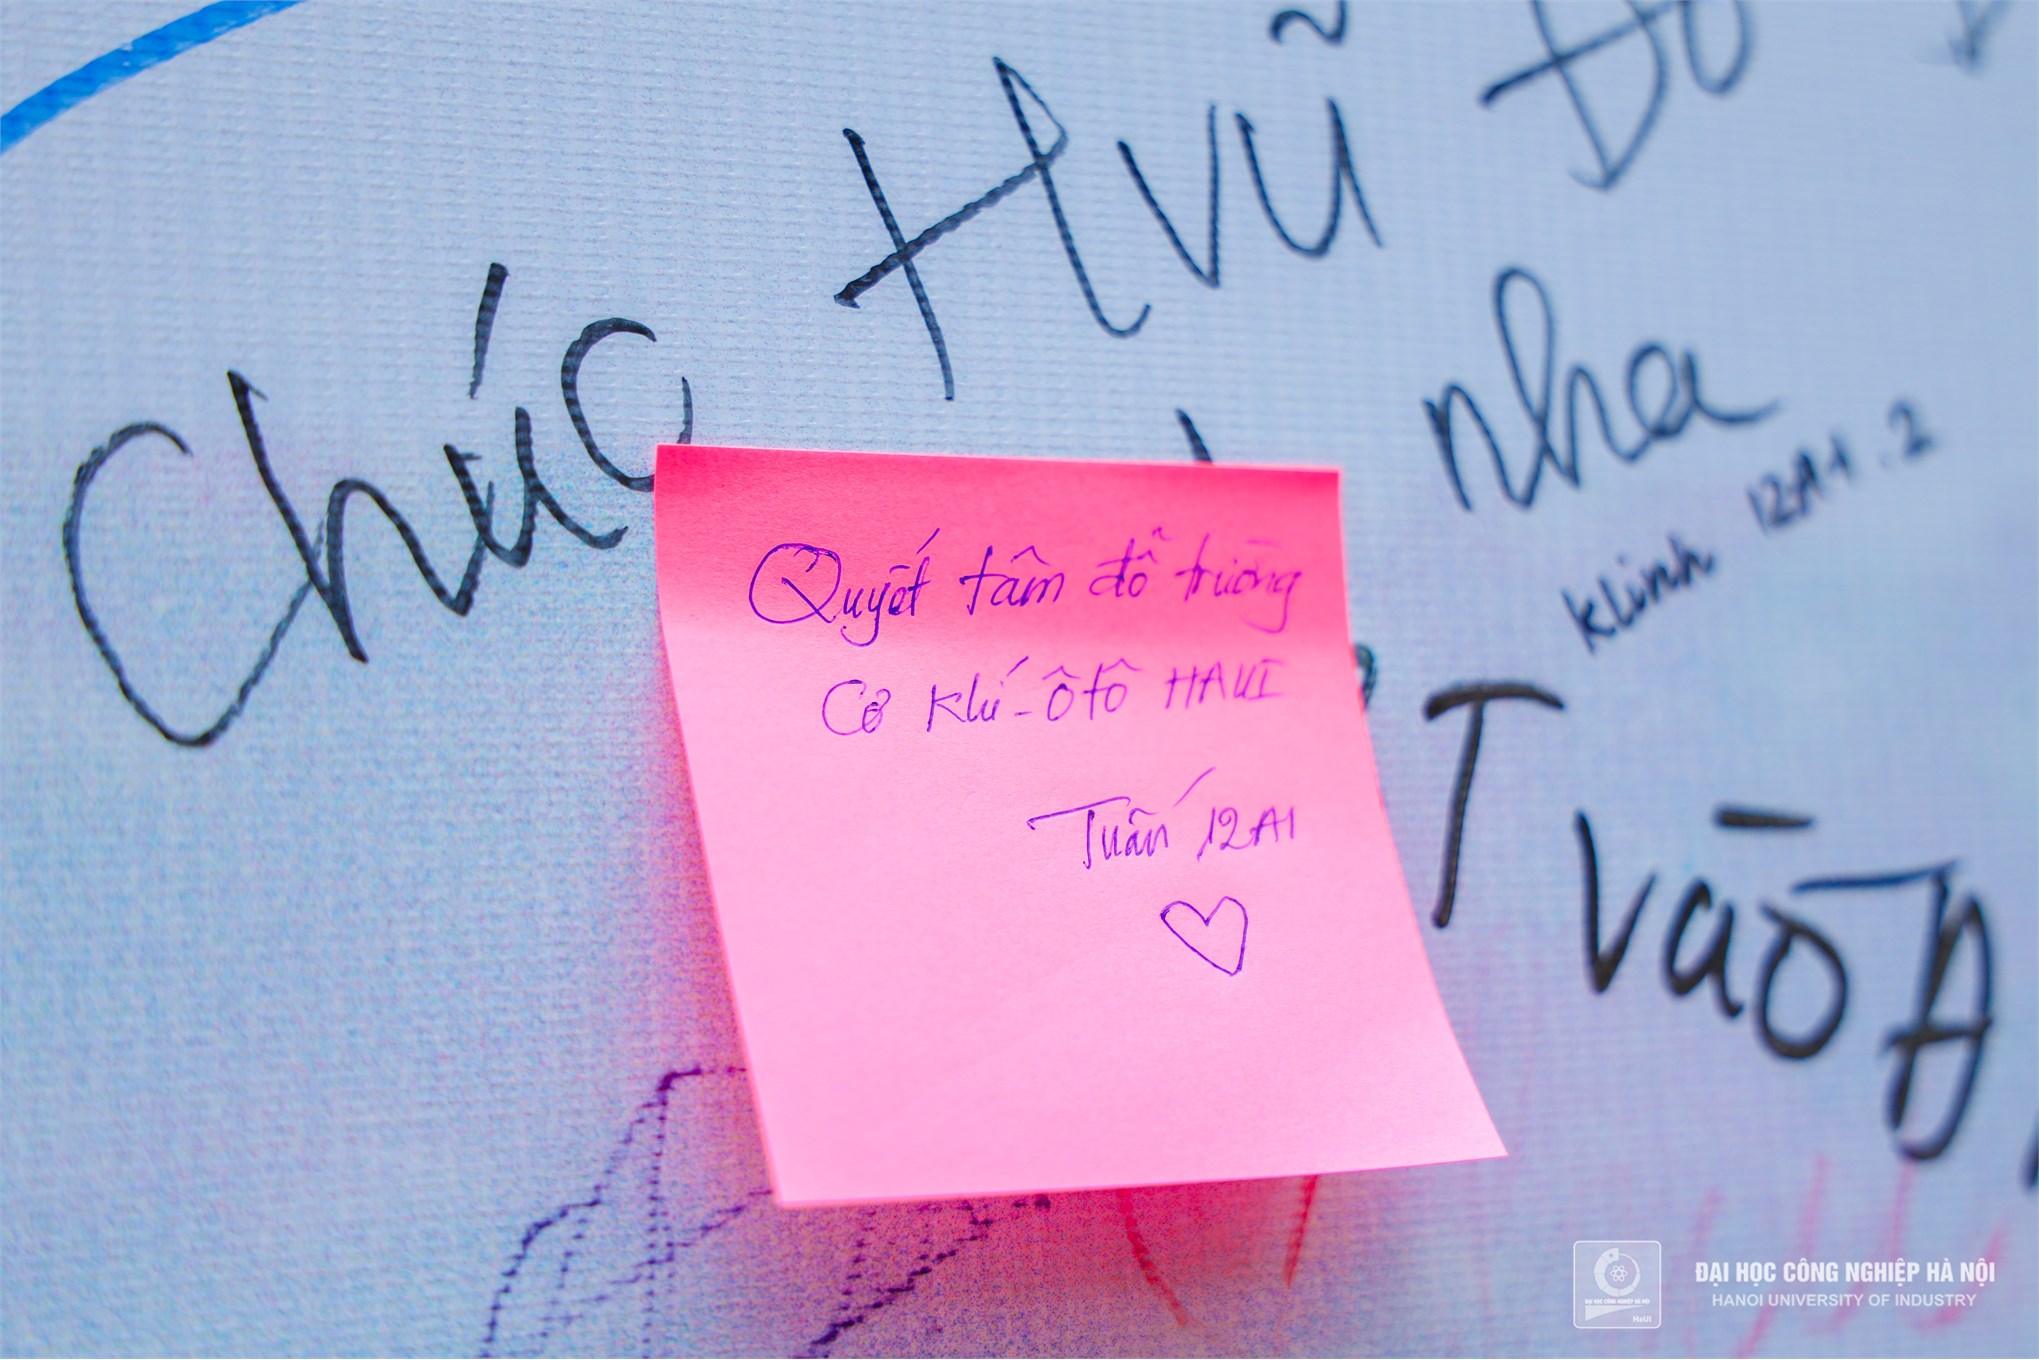 Chúc Hvũ Đỗ
nha
Klinh 12A1.2
Quyết tâm đỗ trường
Cơ khí - Ôtô HAUI
Tuấn 12A1
T
vào Đ
ĐẠI HỌC CÔNG NGHIỆP HÀ NỘI
HANOI UNIVERSITY OF INDUSTRY
ĐẠI HỌC CÔNG NGHIỆP HÀ NỘI
HaUI